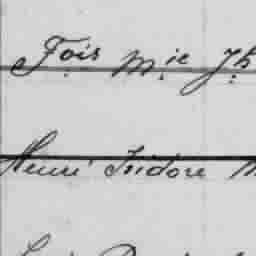 Fois Mie Jh
Henri Isidore M